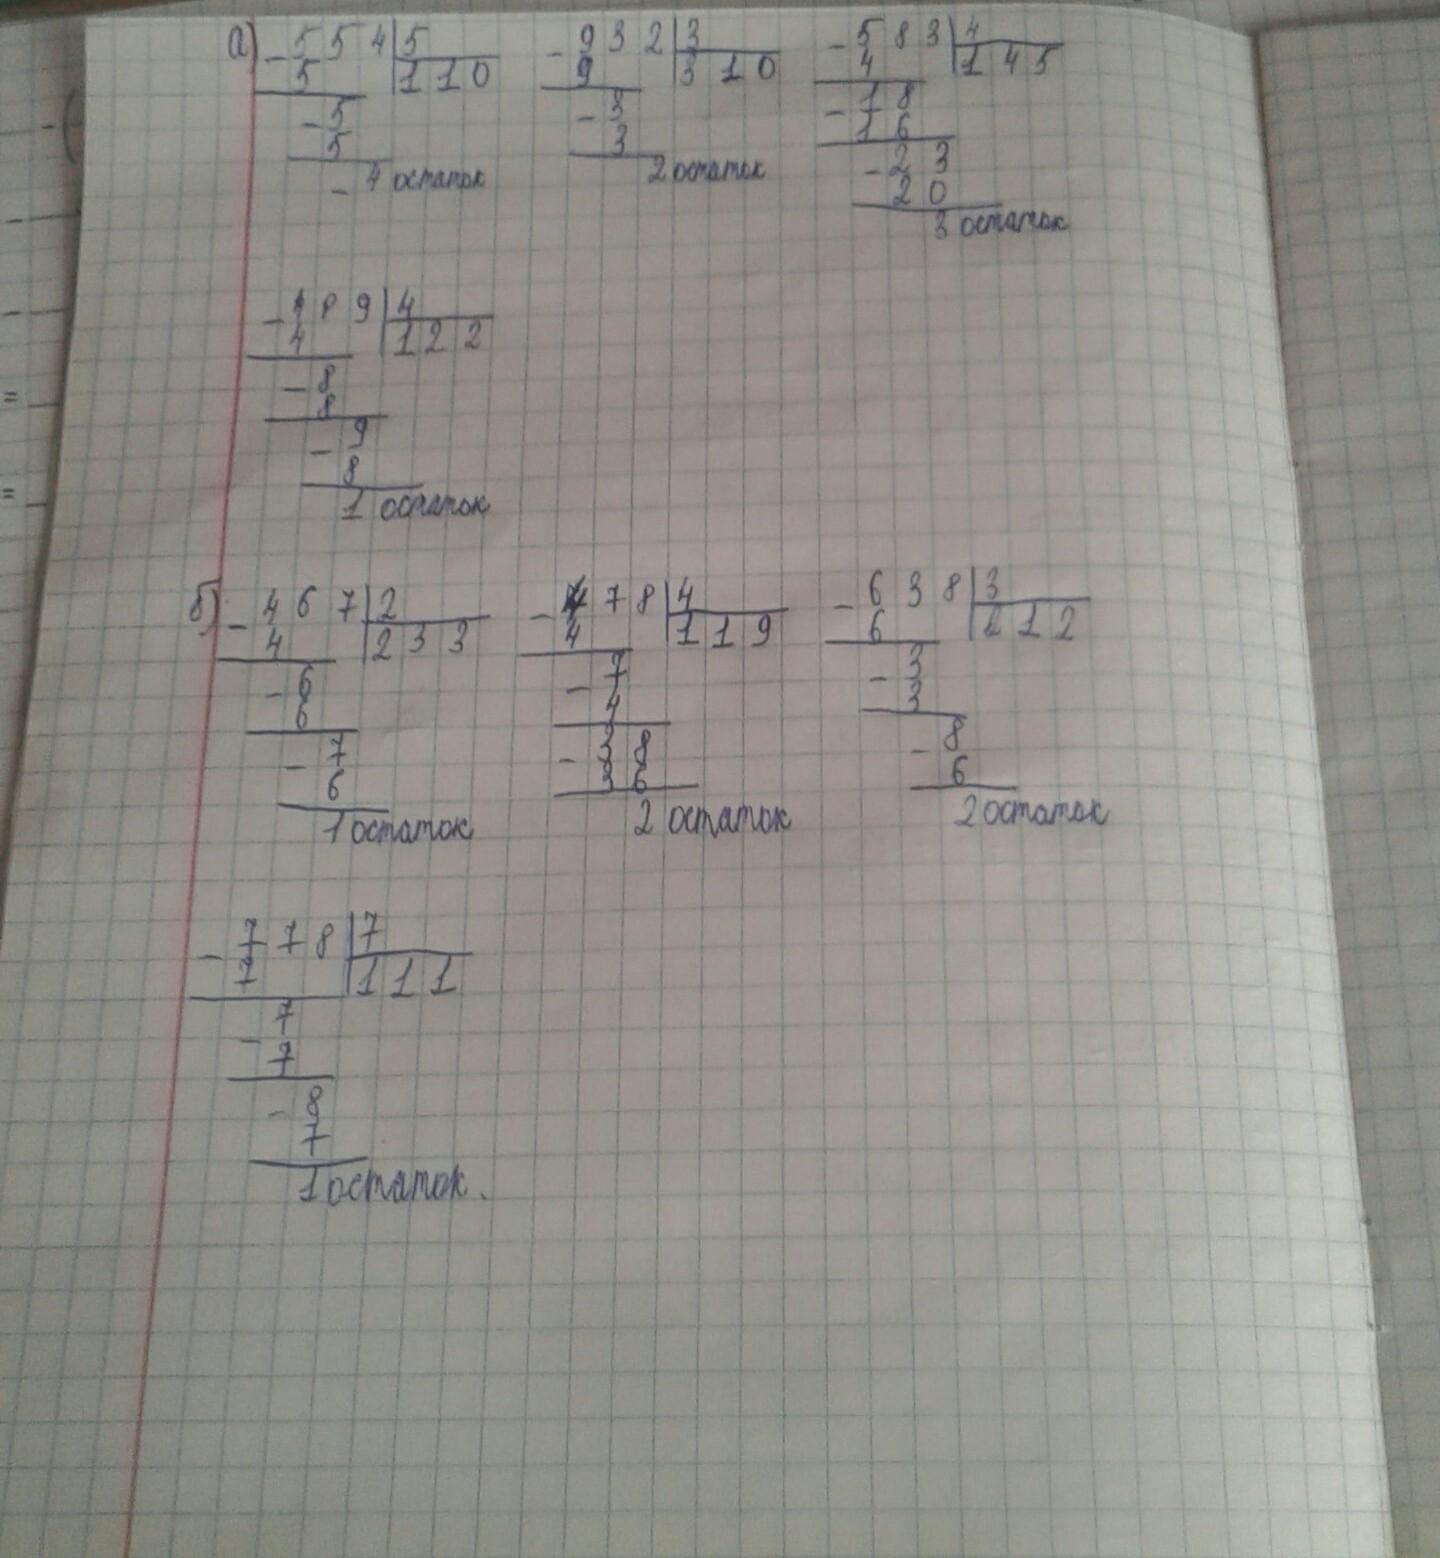 а) - 5 5 4 | 5
5 | 1 1 0
- 5
5
- 4 остаток
- 9 3 2 | 3
9 | 3 1 0
- 3
3
2 остаток
- 5 8 3 | 4
4 | 1 4 5
- 1 8
1 6
- 2 3
2 0
3 остаток
- 4 8 9 | 4
4 | 1 2 2
- 8
8
- 9
8
1 остаток
б) - 4 6 7 | 2
4 | 2 3 3
- 6
6
- 7
6
1 остаток
- 4 7 8 | 4
4 | 1 1 9
- 7
4
- 3 8
3 6
2 остаток
- 6 3 8 | 3
6 | 2 1 2
- 3
3
- 8
6
2 остаток
- 7 7 8 | 7
7 | 1 1 1
- 7
7
- 8
7
1 остаток.